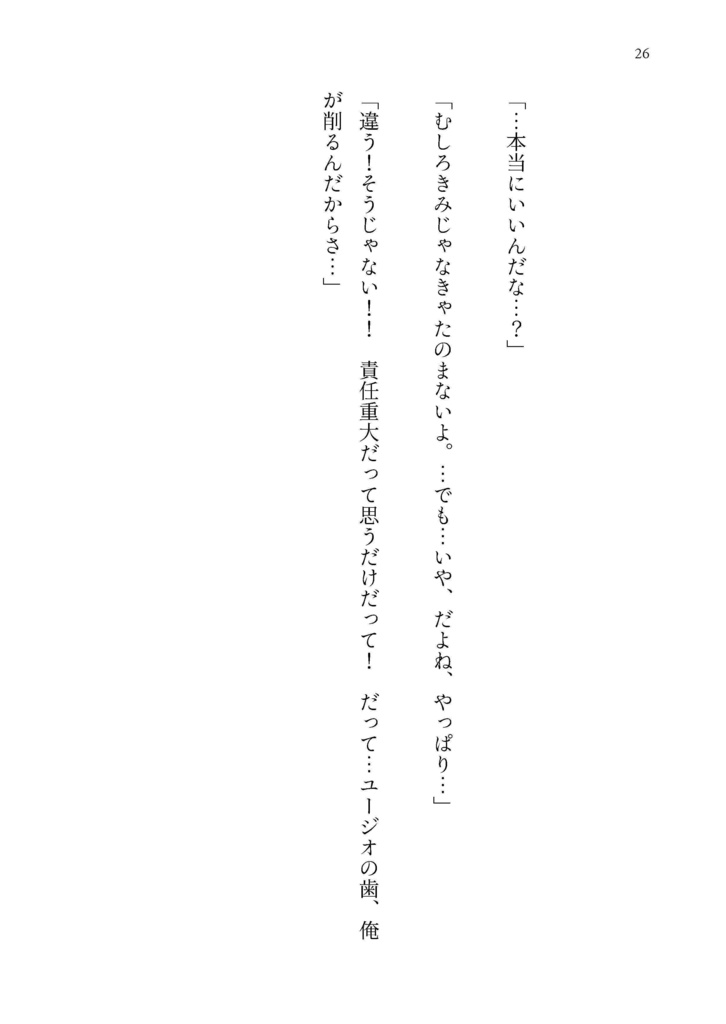 26
「…本当にいいんだな…？」
「むしろきみじゃなきゃたのまないよ。…でも…いや、だよね、やっぱり…」
「違う！そうじゃない！！　責任重大だって思うだけだって！　だって…ユージオの歯、俺
が削るんだからさ…」